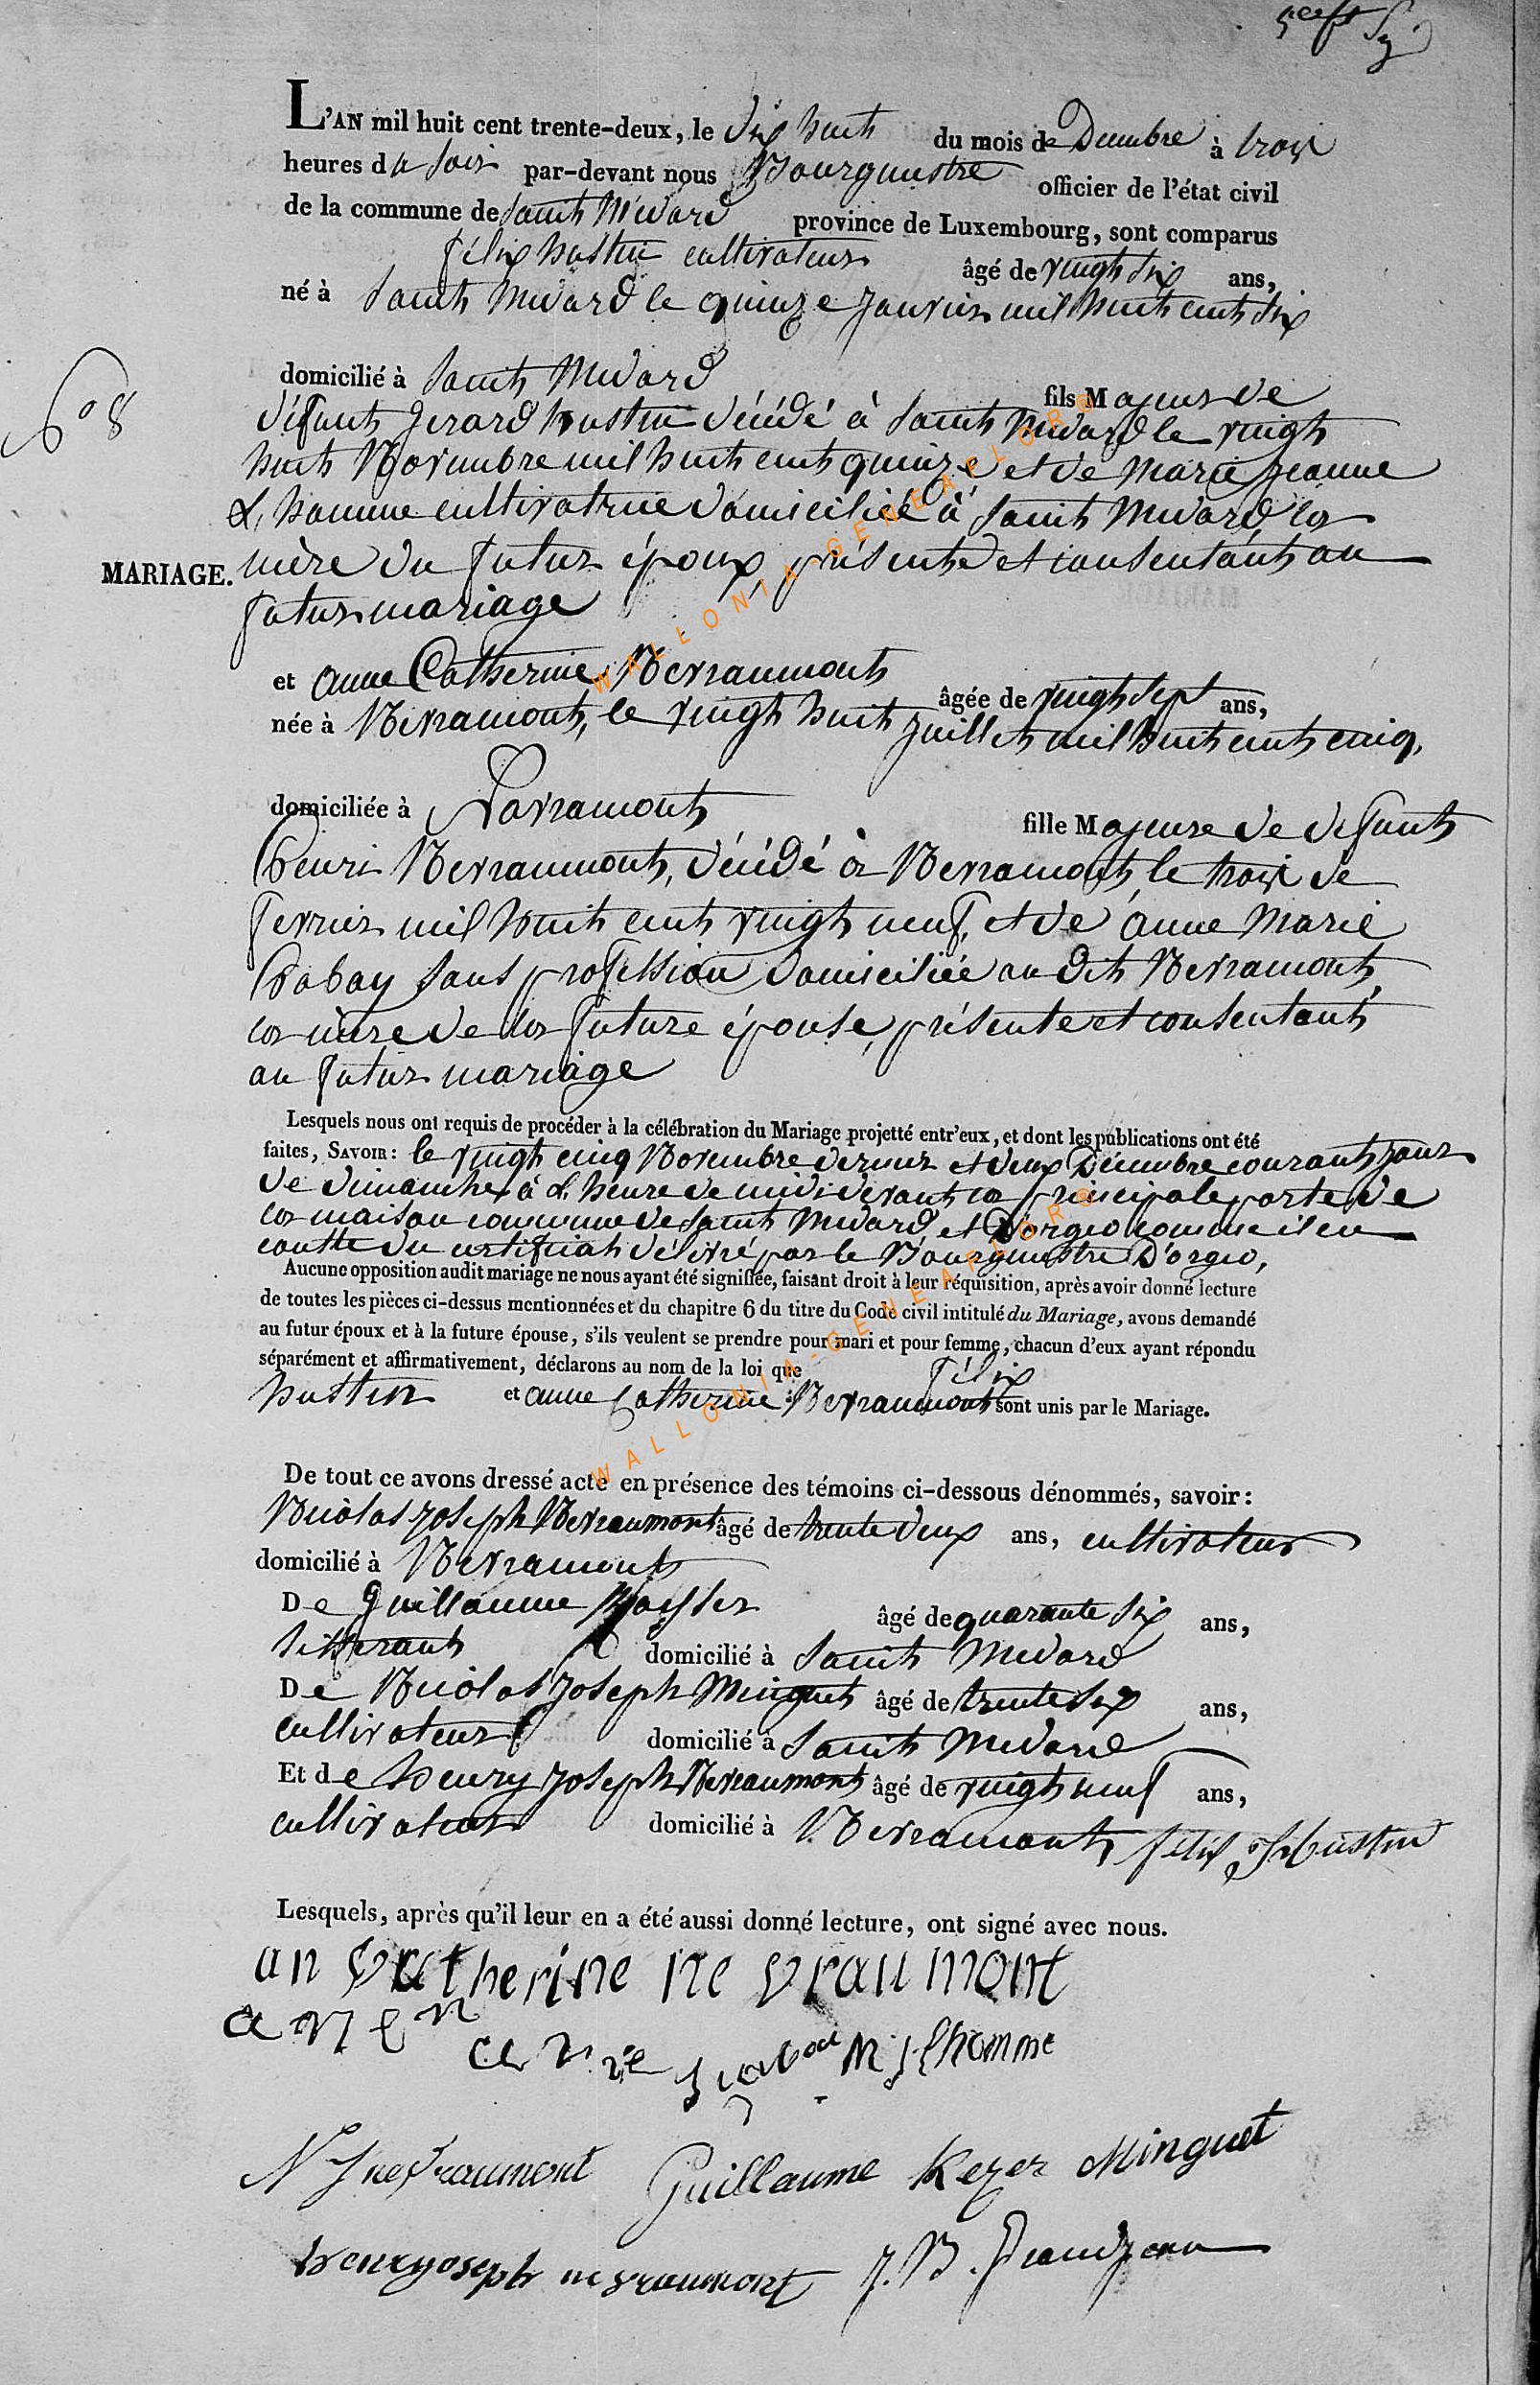 L'AN mil huit cent trente-deux, le dix huit du mois de Decembre à trois
heures du soir par-devant nous Bourgmestre officier de l'état civil
de la commune de Saint Médard province de Luxembourg, sont comparus
félix hustin cultivateur âgé de vingt six ans,
né à Saint Médard le quinze janvier mil huit cent six
domicilié à Saint Médard fils Majeur de
N° 8
défunt Gerard hustin décédé à Saint Médard le vingt
huit Novembre mil huit cent quinze et de Marie jeanne
L'homme cultivatrice domiciliée à Saint Médard la
MARIAGE. mère du futur époux présente et consentant au
futur mariage
et anne Catherine Nevraumont âgée de vingt sept ans,
née à Nevramont, le vingt huit juillet mil huit cent cinq,
domiciliée à Navramont fille Majeure de defunt
henri Nevraumont, décédé à Nevramont, le trois de
fevrier mil huit cent vingt neuf, et de anne Marie
Grabay sans profession domiciliée au dit Nevramont,
la mère de la future épouse, présente et consentant
au futur mariage
Lesquels nous ont requis de procéder à la célébration du Mariage projetté entr'eux, et dont les publications ont été
faites, SAVOIR : le vingt cinq Novembre dernier et deux Décembre courant jour
de dimanche à L'heure de midi devant la principale porte de
la maison commune de Saint Médard et D'orgeo comme il en
conste du certificat délivré par le Bourgmestre D'orgeo,
Aucune opposition audit mariage ne nous ayant été signifiée, faisant droit à leur réquisition, après avoir donné lecture
de toutes les pièces ci-dessus mentionnées et du chapitre 6 du titre du Code civil intitulé du Mariage, avons demandé
au futur époux et à la future épouse, s'ils veulent se prendre pour mari et pour femme, chacun d'eux ayant répondu
séparément et affirmativement, déclarons au nom de la loi que félix
hustin et anne Catherine Nevraumont sont unis par le Mariage.
De tout ce avons dressé acte en présence des témoins ci-dessous dénommés, savoir :
Nicolas joseph Nevraumont âgé de trente deux ans, cultivateur
domicilié à Nevramont
De Guillaume âgé de quarante six ans,
domicilié à Saint Médard
De Nicolas joseph Minguet âgé de trente six ans,
cultivateur domicilié à Saint Médard
Et de henry joseph Nevraumont âgé de vingt neuf ans,
cultivateur domicilié à Nevramont, félix hustin
Lesquels, après qu'il leur en a été aussi donné lecture, ont signé avec nous.
an catherine nevraumont
M j lhomme
N J nevraumont Guillaume Kezer Minguet
henry joseph nevraumont J. B. Grandjean
WALLONIA-GENEAFLORE
WALLONIA-GENEAFLORE